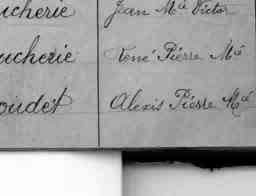 ucherie Jean Mie Victor
ucherie René Pierre Mié
oudet Alexis Pierre Mié